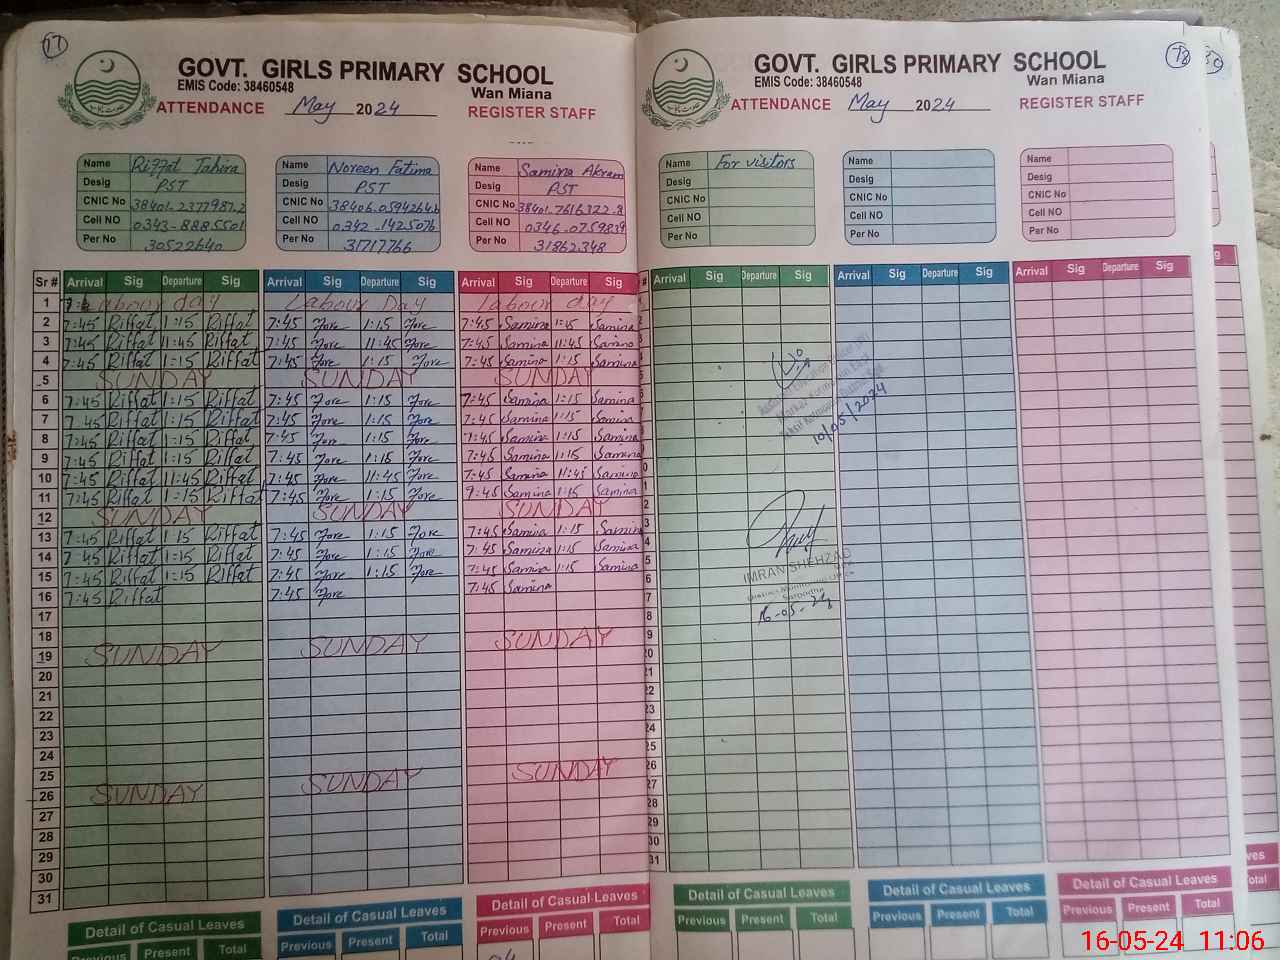 17
GOVT. GIRLS PRIMARY SCHOOL
EMIS Code: 38460548
Wan Miana
ATTENDANCE May 2024 REGISTER STAFF
Name Riffat Tahira
Desig PST
CNIC No 38401-2377987-2
Cell NO 0343-8885501
Per No 30522640
Name Noreen Fatima
Desig PST
CNIC No
Cell NO 0342-1425076
Per No 31717766
Name Samina Akram
Desig PST
CNIC No 38401-7616322-8
Cell NO 0346-0759839
Per No 31862348
Sr # Arrival Sig Departure Sig Arrival Sig Departure Sig Arrival Sig Departure Sig
1 Labour day Labour Day labour day
2 7:45 Riffat 1:15 Riffat 7:45 1:15 7:45 Samina 1:15 Samina
3 7:45 Riffat 11:45 Riffat 7:45 11:45 7:45 Samina 11:45 Samina
4 7:45 Riffat 1:15 Riffat 7:45 1:15 7:45 Samina 1:15 Samina
5 SUNDAY SUNDAY SUNDAY
6 7:45 Riffat 1:15 Riffat 7:45 1:15 7:45 Samina 1:15 Samina
7 7:45 Riffat 1:15 Riffat 7:45 1:15 7:45 Samina 1:15 Samina
8 7:45 Riffat 1:15 Riffat 7:45 1:15 7:45 Samina 1:15 Samina
9 7:45 Riffat 1:15 Riffat 7:45 1:15 7:45 Samina 1:15 Samina
10 7:45 Riffat 11:45 Riffat 7:45 11:45 7:45 Samina 11:45 Samina
11 7:45 Riffat 1:15 Riffat 7:45 1:15 7:45 Samina 1:15 Samina
12 SUNDAY SUNDAY SUNDAY
13 7:45 Riffat 1:15 Riffat 7:45 1:15 7:45 Samina 1:15 Samina
14 7:45 Riffat 1:15 Riffat 7:45 1:15 7:45 Samina 1:15 Samina
15 7:45 Riffat 1:15 Riffat 7:45 1:15 7:45 Samina 1:15 Samina
16 7:45 Riffat 7:45 7:45 Samina
17
18
19 SUNDAY SUNDAY SUNDAY
20
21
22
23
24
25
26 SUNDAY SUNDAY SUNDAY
27
28
29
30
31
Detail of Casual Leaves Detail of Casual Leaves Detail of Casual Leaves
Previous Present Total Previous Present Total Previous Present Total
04
GOVT. GIRLS PRIMARY SCHOOL
EMIS Code: 38460548
Wan Miana
ATTENDANCE May 2024 REGISTER STAFF
Name For visitors
Desig
CNIC No
Cell NO
Per No
Name
Desig
CNIC No
Cell NO
Per No
Name
Desig
CNIC No
Cell NO
Per No
Arrival Sig Departure Sig Arrival Sig Departure Sig Arrival Sig Departure Sig
10/05/2024
IMRAN SHEHZAD
16-05-24
Detail of Casual Leaves Detail of Casual Leaves Detail of Casual Leaves
Previous Present Total Previous Present Total Previous Present Total
16-05-24 11:06